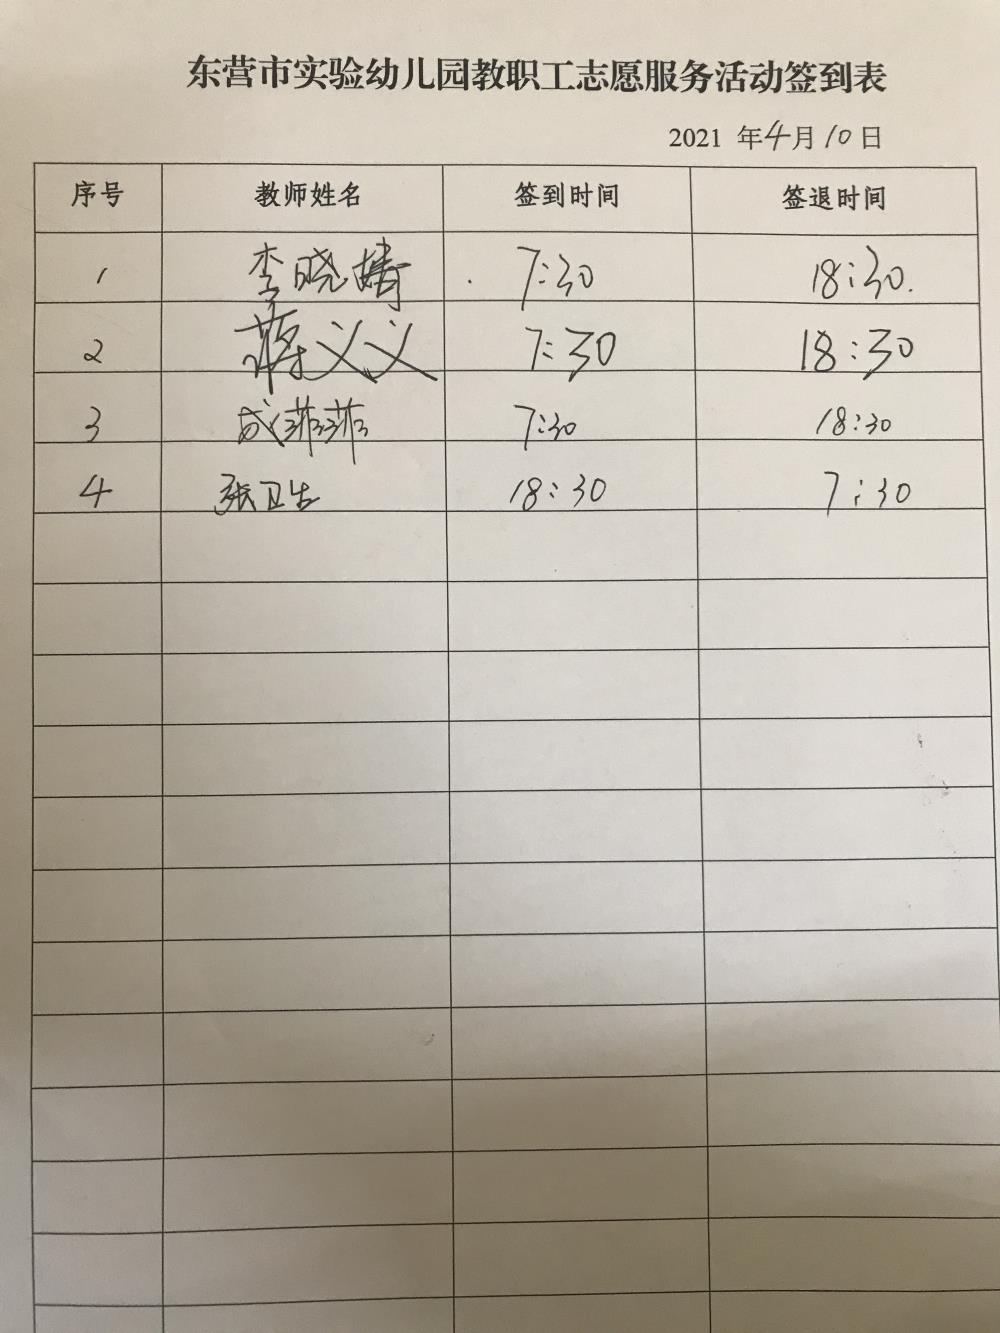 东营市实验幼儿园教职工志愿服务活动签到表
2021 年4月10日
序号 教师姓名 签到时间 签退时间
1 李晓婧 7:30 18:30.
2 蒋义义 7:30 18:30
3 成菲菲 7:30 18:30
4 张卫生 18:30 7:30